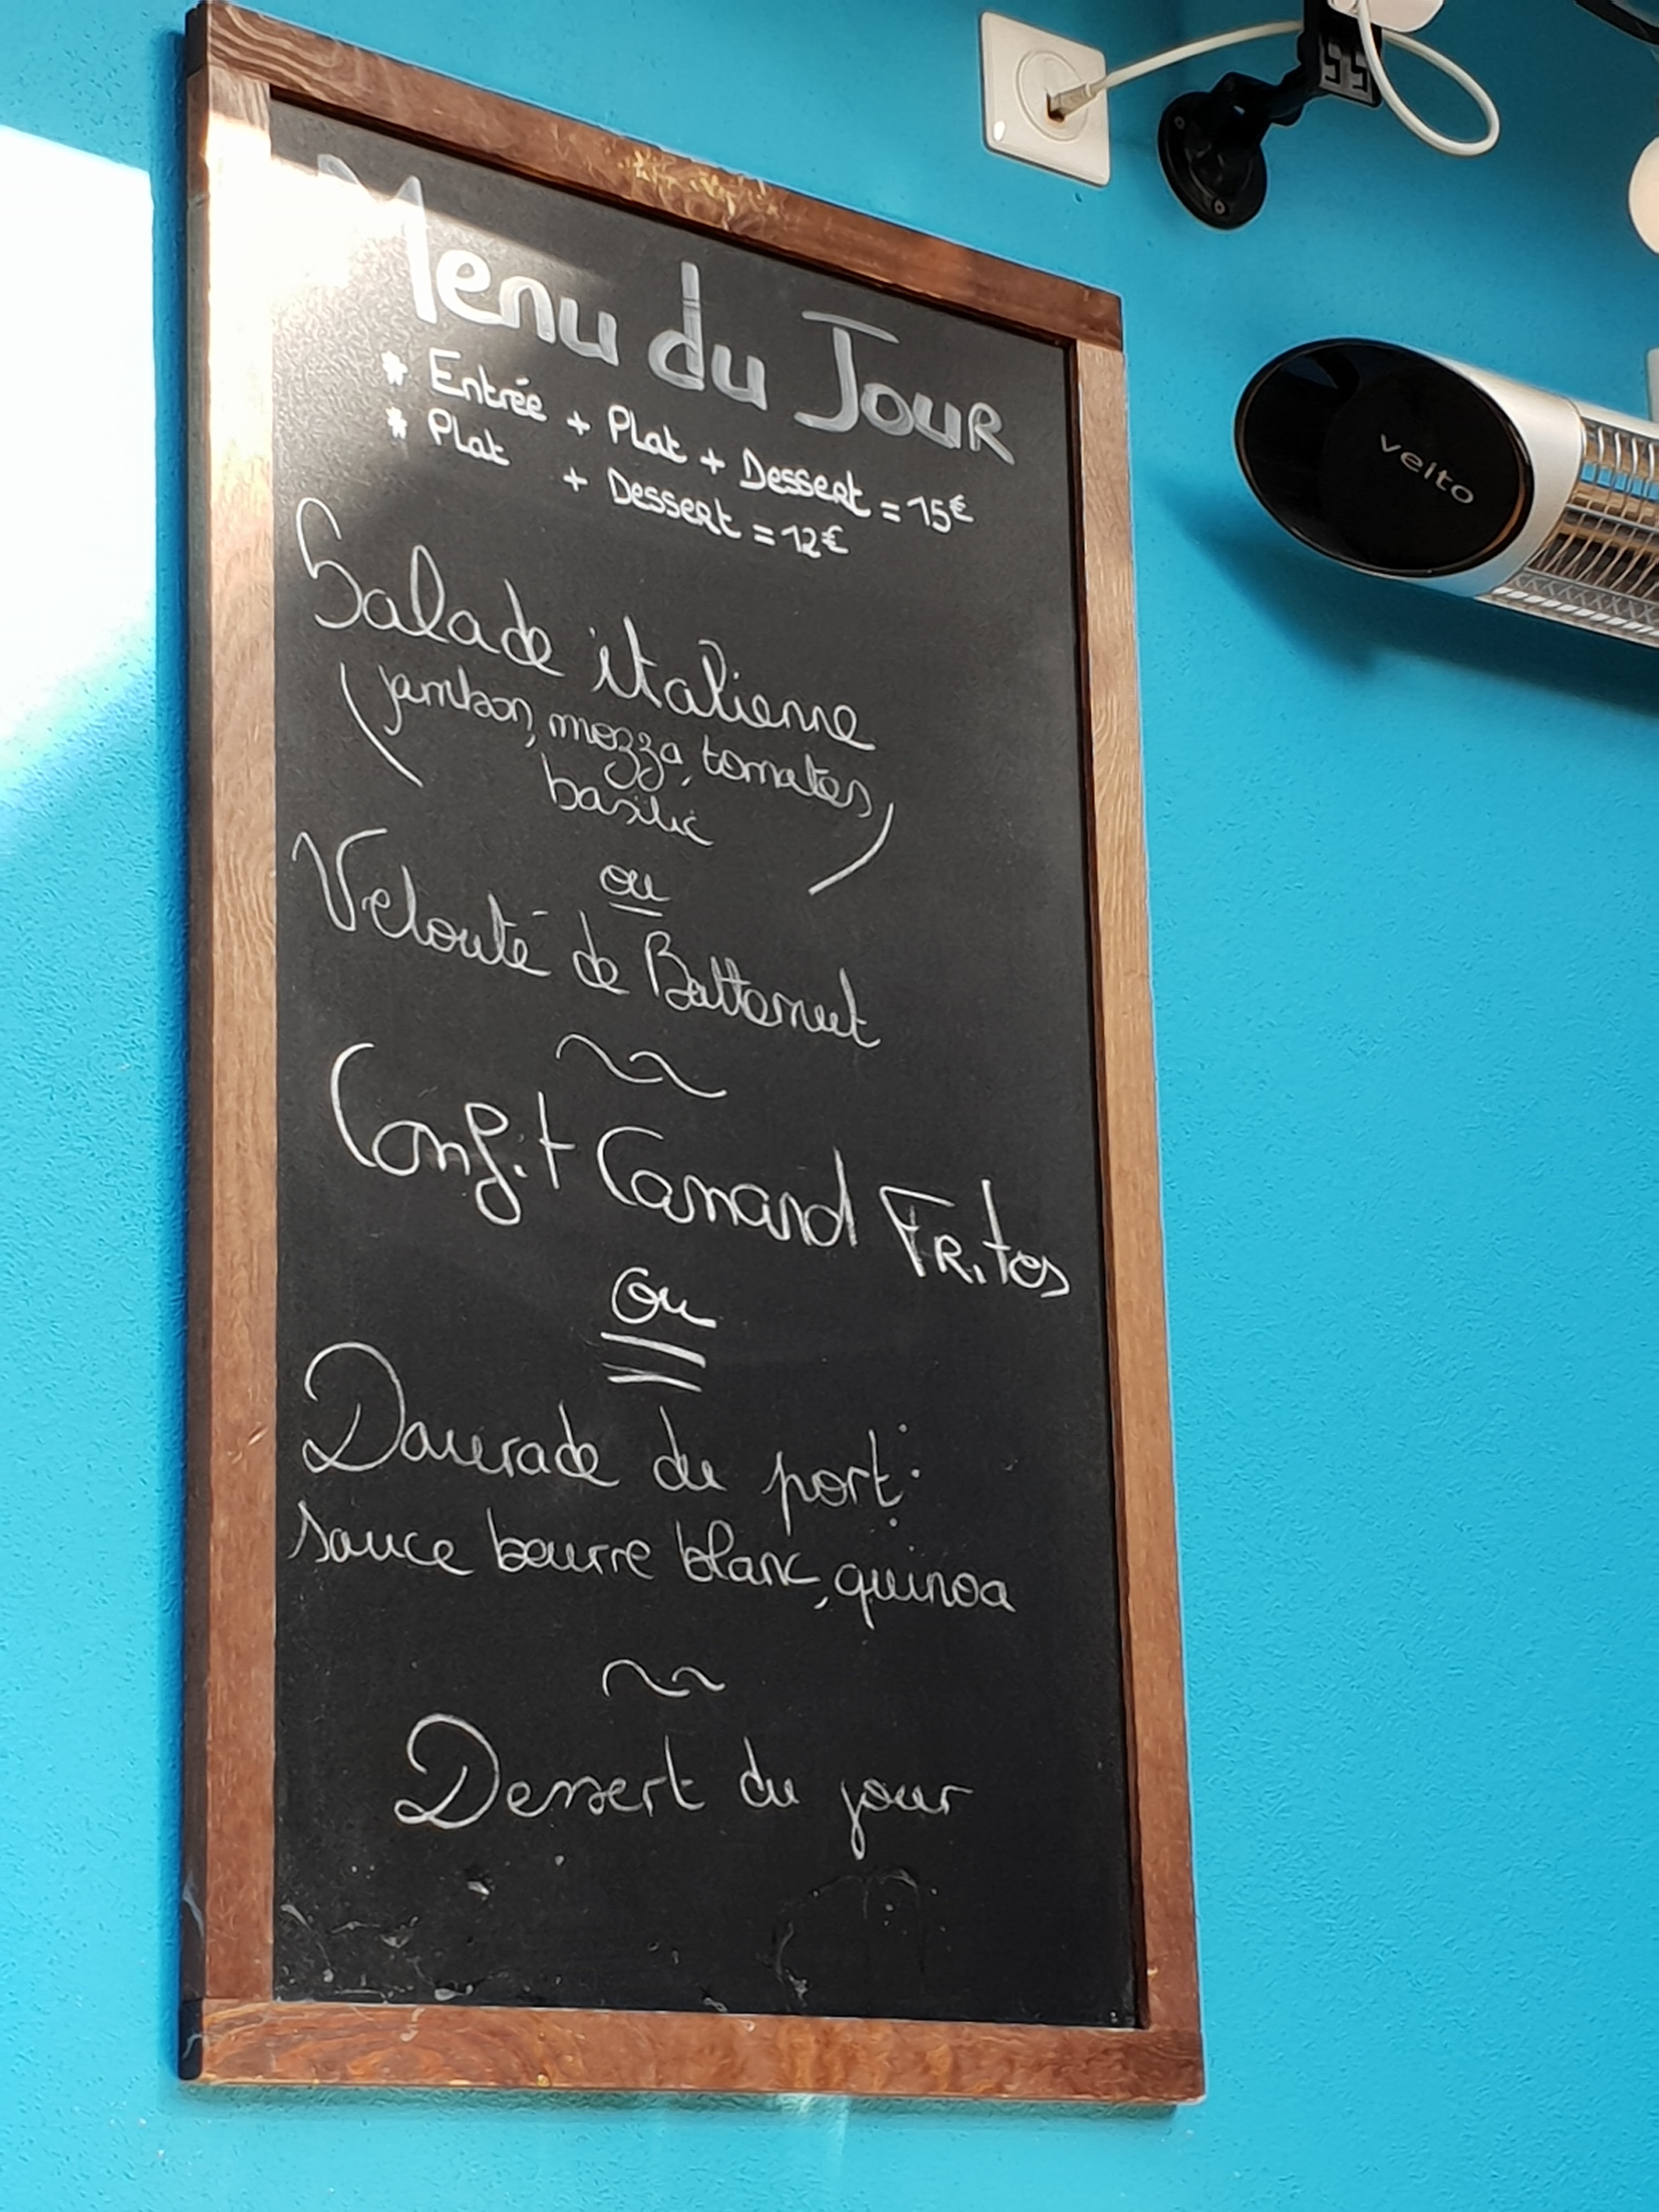 Menu du Jour
* Entrée + Plat + Dessert = 15€
* Plat + Dessert = 12€
Salade italienne
(jambon, mozza, tomates,
basilic)
ou
Velouté de Butternut
Confit Canard Frites
ou
Daurade du port :
sauce beurre blanc, quinoa
Dessert du jour
veito